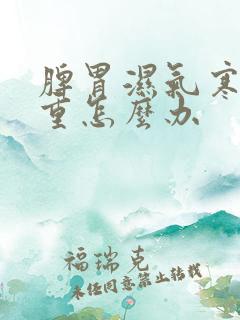 脾胃濕氣寒
重怎麼办
福瑞克
未经同意禁止转载